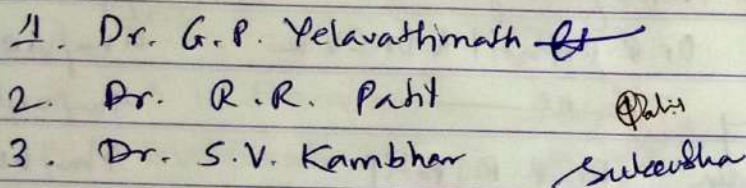 1. Dr. G.P. Yelavathimath
2. Dr. R.R. Patil
3. Dr. S.V. Kambhar